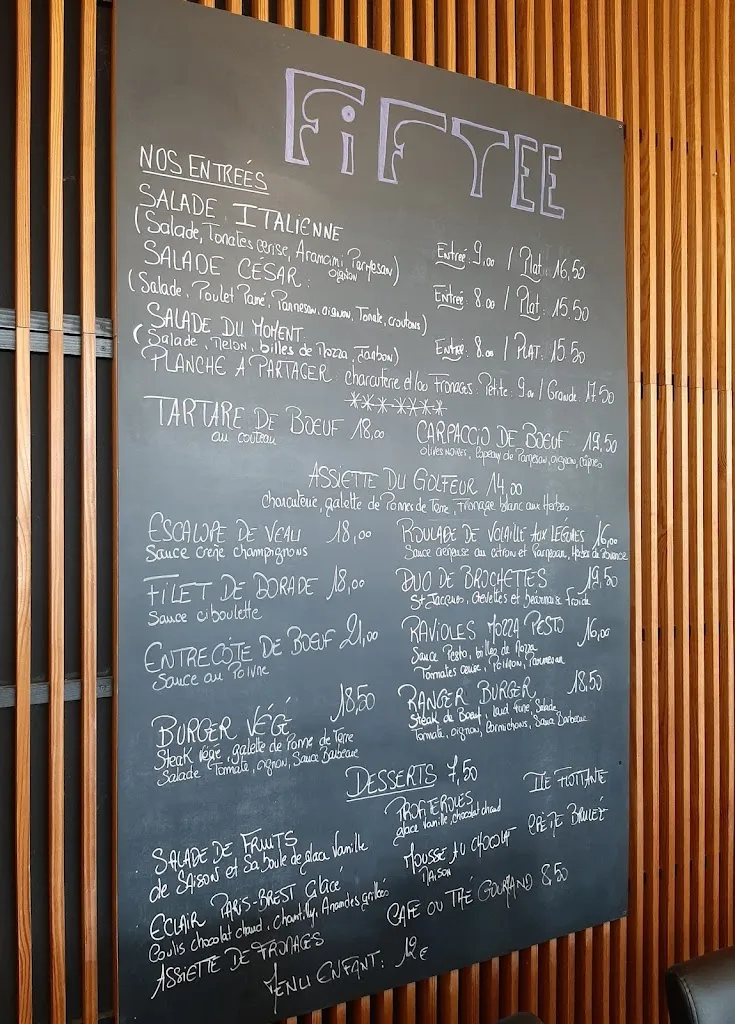 FiFTEE
NOS ENTREÉS
SALADE ITALIENNE
(Salade, Tomates cerise, Arancini, Parmesan)
oignon
Entrée 9,00 / Plat: 16,50
SALADE CÉSAR:
(Salade, Poulet Pané, Parmesan, oignon, Tomate, croutons)
Entrée 8.00 / Plat: 15.50
SALADE DU MOMENT
(Salade, Melon, billes de Mozza, Jambon)
Entrée 8.00 / PLAT: 15.50
PLANCHE A PARTAGER: charcuterie et/ou Fromages: Petite: 9.00 / Grande: 17.50
*******
TARTARE DE BOEUF 18,00
au couteau
CARPACCIO DE BOEUF 19,50
OLIVES NOIRES, Copeaux de Parmesan, oignon, câpres
ASSIETTE DU GOLFEUR 14,00
charcuterie, galette de Pommes de Terre, Fromage blanc aux Herbes
ESCALOPE DE VEAU 18,00
Sauce crème champignons
ROULADE DE VOLAILLE AUX LÉGUMES 16,00
Sauce crémeuse au citron et Parmesan, Herbes de Provence
FILET DE DORADE 18,00
Sauce ciboulette
DUO DE BROCHETTES 19,50
St Jacques, Crevettes et béarnaise Froide
ENTRECÔTE DE BOEUF 21,00
Sauce au Poivre
RAVIOLES MOZZA PESTO 16,00
Sauce Pesto, billes de Mozza
Tomates cerise, Poivron, Parmesan
BURGER VÉGÉ 18,50
Steak végé, galette de Pomme de Terre
Salade, Tomate, oignon, Sauce Barbecue
RANGER BURGER 18,50
Steak de Boeuf, lard fumé, Salade
Tomate, oignon, Cornichons, Sauce Barbecue
DESSERTS 7,50
SALADE DE FRUITS
de SAISON et Sa boule de glace Vanille
ECLAIR PARIS-BREST Glacé
Coulis chocolat chaud, Chantilly, Amandes grillées
ASSIETTE DE FROMAGES
PROFITEROLES
glace Vanille, chocolat chaud
MOUSSE AU CHOCOLAT
MAISON
ILE FLOTTANTE
CRÈME BRULEÉ
CAFE OU THÉ GOURMAND 8,50
MENU ENFANT: 12€